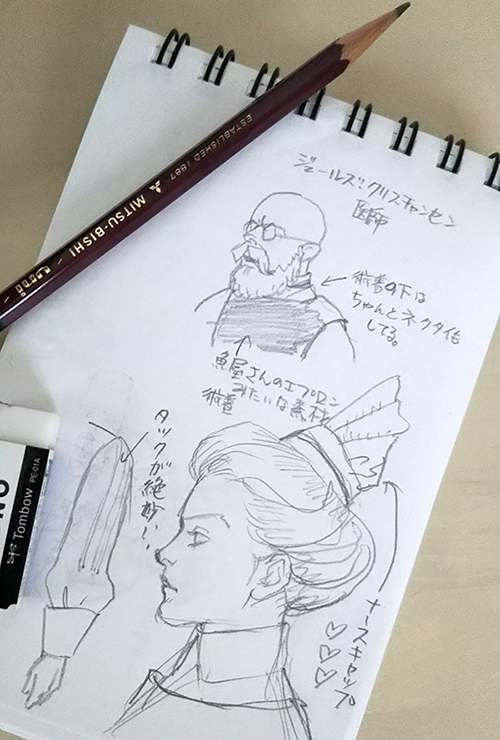 ESTABLISHED 1887
MITSU-BISHI
uni
ジェールズ・クリスチャンセン
医師
術着の下は
ちゃんとネクタイも
してる。
魚屋さんのエプロン
みたいな素材
術着
タックが絶妙!!
ナースキャップ
♡♡♡
Tombow PE-01A
NO